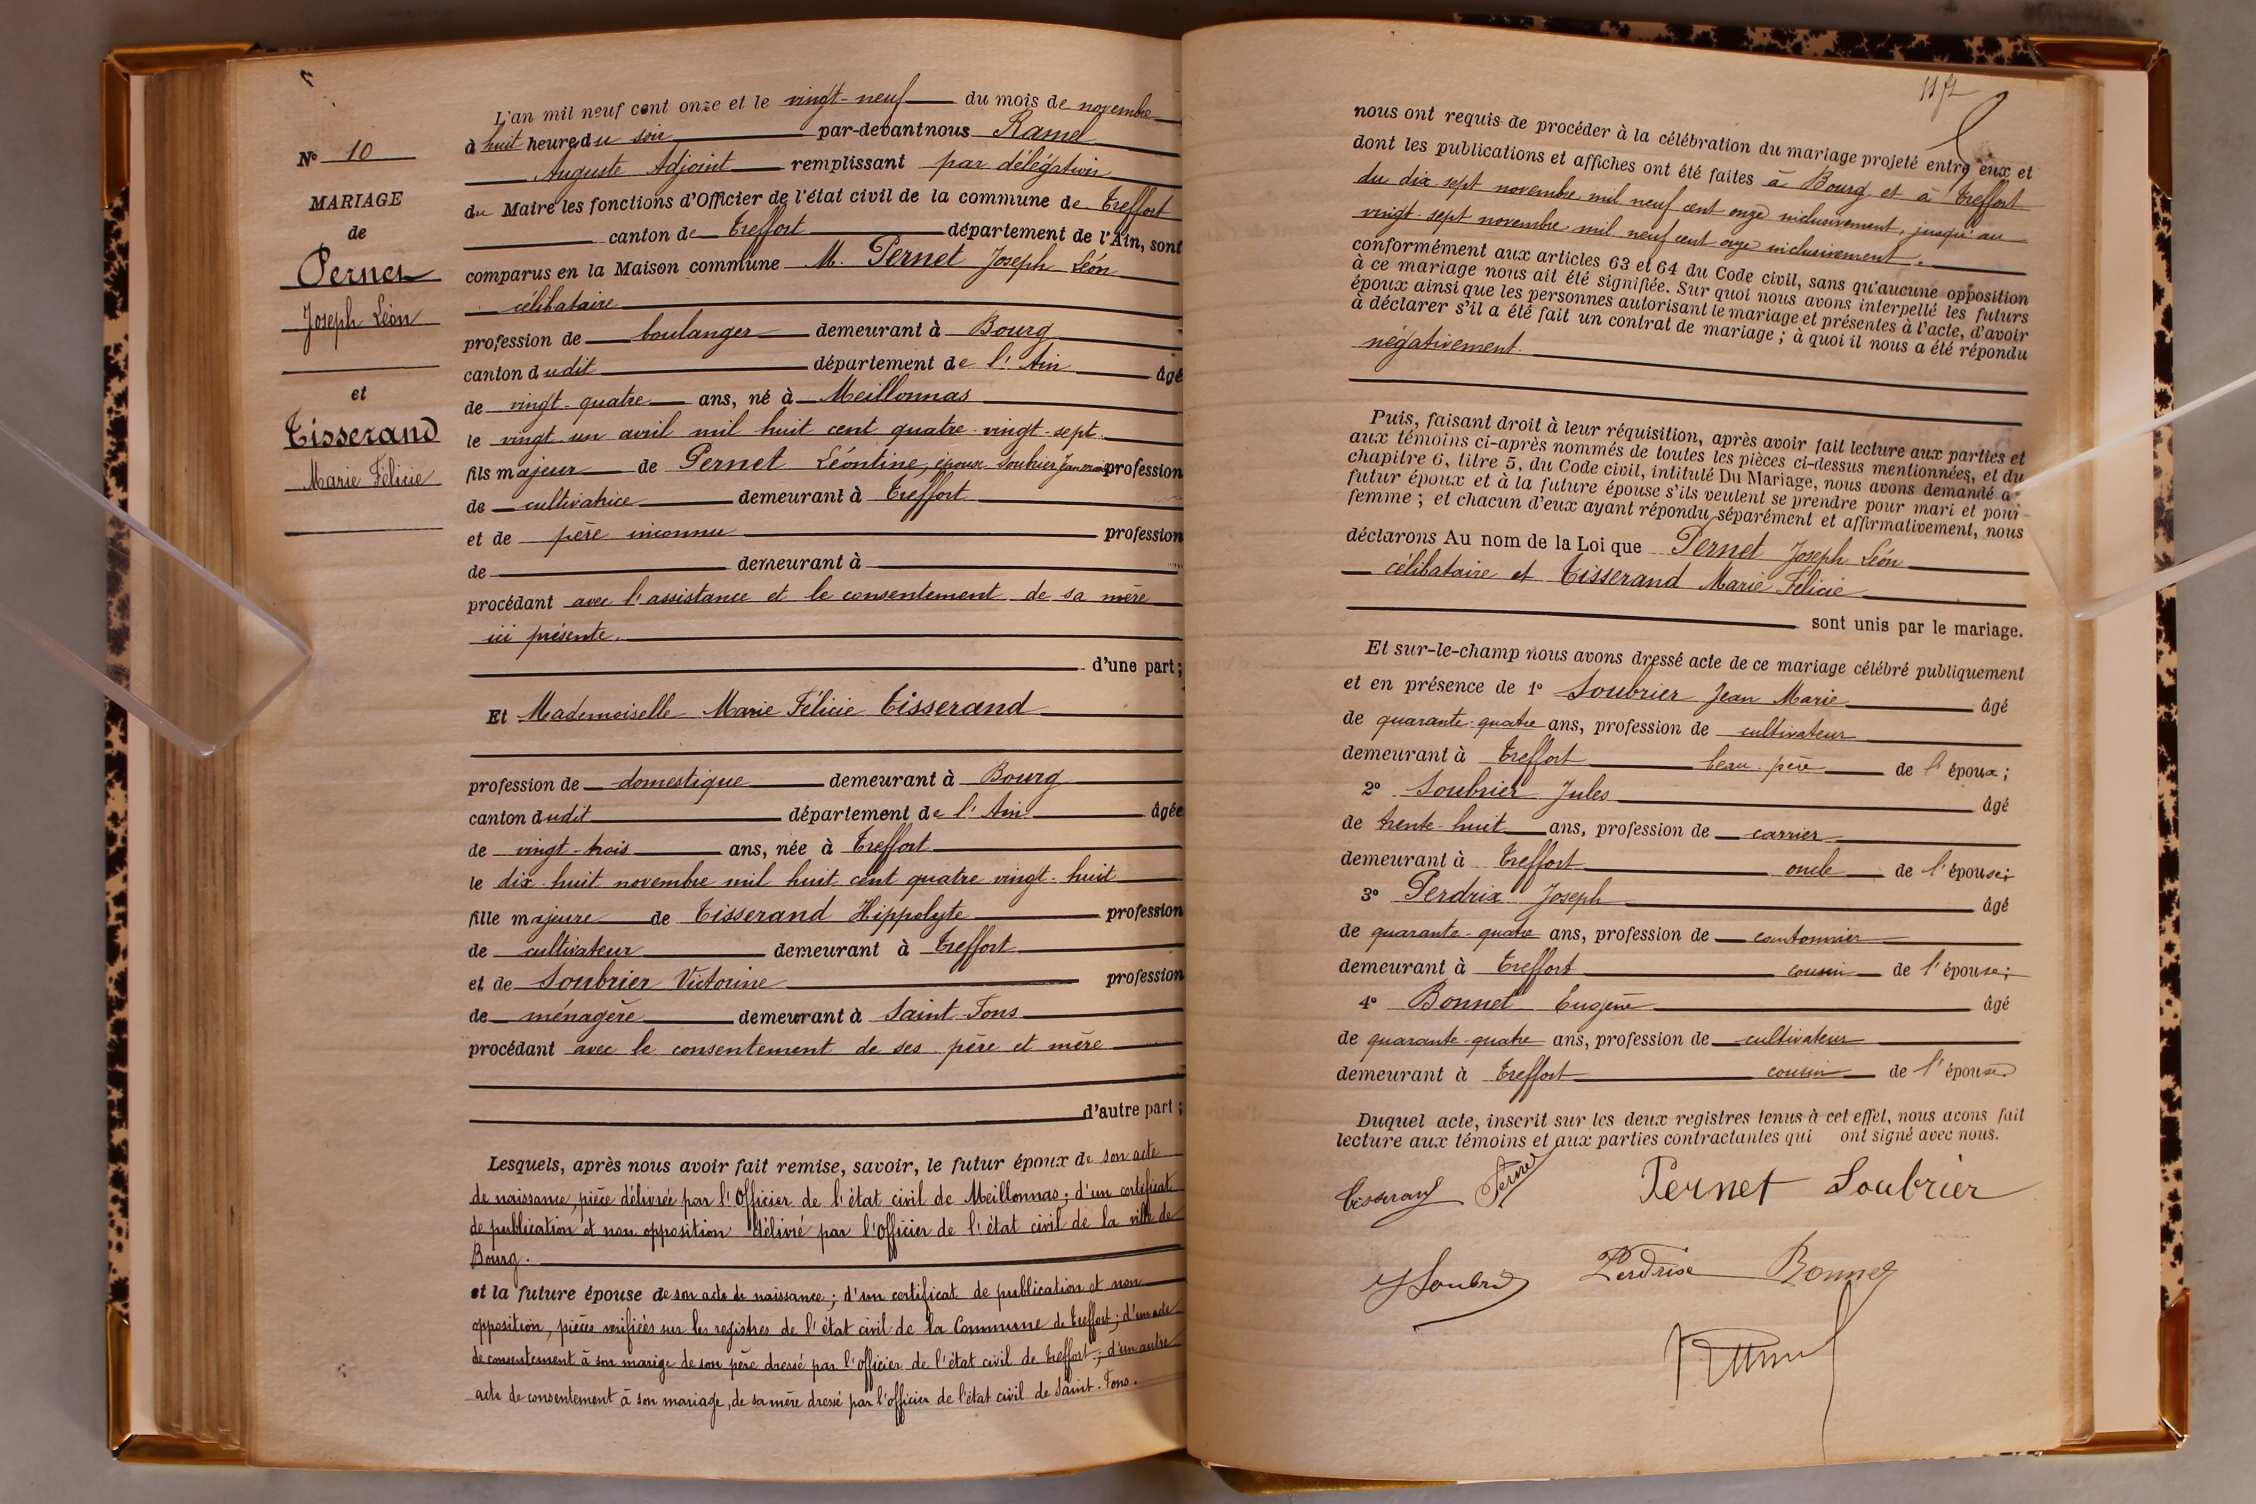 N° 10
MARIAGE
de
Pernet
Joseph Léon
et
Tisserand
Marie Félicie
L'an mil neuf cent onze et le vingt-neuf du mois de novembre
à huit heures du soir par-devant nous Ramel
Auguste Adjoint remplissant par délégation
du Maire les fonctions d'Officier de l'état civil de la commune de Treffort
canton de Treffort département de l'Ain, sont
comparus en la Maison commune M. Pernet Joseph Léon
célibataire
profession de boulanger demeurant à Bourg
canton dudit département de l'Ain âgé
de vingt-quatre ans, né à Meillonnas
le vingt un avril mil huit cent quatre-vingt-sept
fils majeur de Pernet Léontine, épouse Soubrier Jean Marie profession
de cultivatrice demeurant à Treffort
et de père inconnu profession
de demeurant à
procédant avec l'assistance et le consentement de sa mère
ici présente.
d'une part;
Et Mademoiselle Marie Félicie Tisserand
profession de domestique demeurant à Bourg
canton dudit département de l'Ain âgée
de vingt-trois ans, née à Treffort
le dix-huit novembre mil huit cent quatre vingt-huit
fille majeure de Tisserand Hippolyte profession
de cultivateur demeurant à Treffort
et de Soubrier Victorine profession
de ménagère demeurant à Saint-Fons
procédant avec le consentement de ses père et mère
d'autre part;
Lesquels, après nous avoir fait remise, savoir, le futur époux de son acte
de naissance, pièce délivrée par l'Officier de l'état civil de Meillonnas; d'un certificat
de publication et non opposition délivré par l'Officier de l'état civil de la ville de
Bourg.
et la future épouse de son acte de naissance; d'un certificat de publication et non
opposition, pièces vérifiées sur les registres de l'état civil de la Commune de Treffort; d'un acte
de consentement à son mariage de son père dressé par l'officier de l'état civil de Treffort; d'un autre
acte de consentement à son mariage, de sa mère dressé par l'officier de l'état civil de Saint-Fons.
nous ont requis de procéder à la célébration du mariage projeté entre eux et
dont les publications et affiches ont été faites à Bourg et à Treffort
du dix-sept novembre mil neuf cent onze inclusivement, jusqu'au
vingt-sept novembre mil neuf cent onze inclusivement.
conformément aux articles 63 et 64 du Code civil, sans qu'aucune opposition
à ce mariage nous ait été signifiée. Sur quoi nous avons interpellé les futurs
époux ainsi que les personnes autorisant le mariage et présentes à l'acte, d'avoir
à déclarer s'il a été fait un contrat de mariage; à quoi il nous a été répondu
négativement.
Puis, faisant droit à leur réquisition, après avoir fait lecture aux parties et
aux témoins ci-après nommés de toutes les pièces ci-dessus mentionnées, et du
chapitre 6, titre 5, du Code civil, intitulé Du Mariage, nous avons demandé a
futur époux et à la future épouse s'ils veulent se prendre pour mari et pour
femme; et chacun d'eux ayant répondu séparément et affirmativement, nous
déclarons Au nom de la Loi que Pernet Joseph Léon
célibataire et Tisserand Marie Félicie
sont unis par le mariage.
Et sur-le-champ nous avons dressé acte de ce mariage célébré publiquement
et en présence de 1° Soubrier Jean Marie âgé
de quarante-quatre ans, profession de cultivateur
demeurant à Treffort beau-père de l'époux;
2° Soubrier Jules âgé
de trente-huit ans, profession de carrier
demeurant à Treffort oncle de l'épouse;
3° Perdrix Joseph âgé
de quarante-quatre ans, profession de cantonnier
demeurant à Treffort cousin de l'épouse;
4° Bonnet Eugène âgé
de quarante-quatre ans, profession de cultivateur
demeurant à Treffort cousin de l'épouse
Duquel acte, inscrit sur les deux registres tenus à cet effet, nous avons fait
lecture aux témoins et aux parties contractantes qui ont signé avec nous.
Tisserand Pernet Pernet Soubrier
J Soubrier Perdrix Bonnet
Ramel